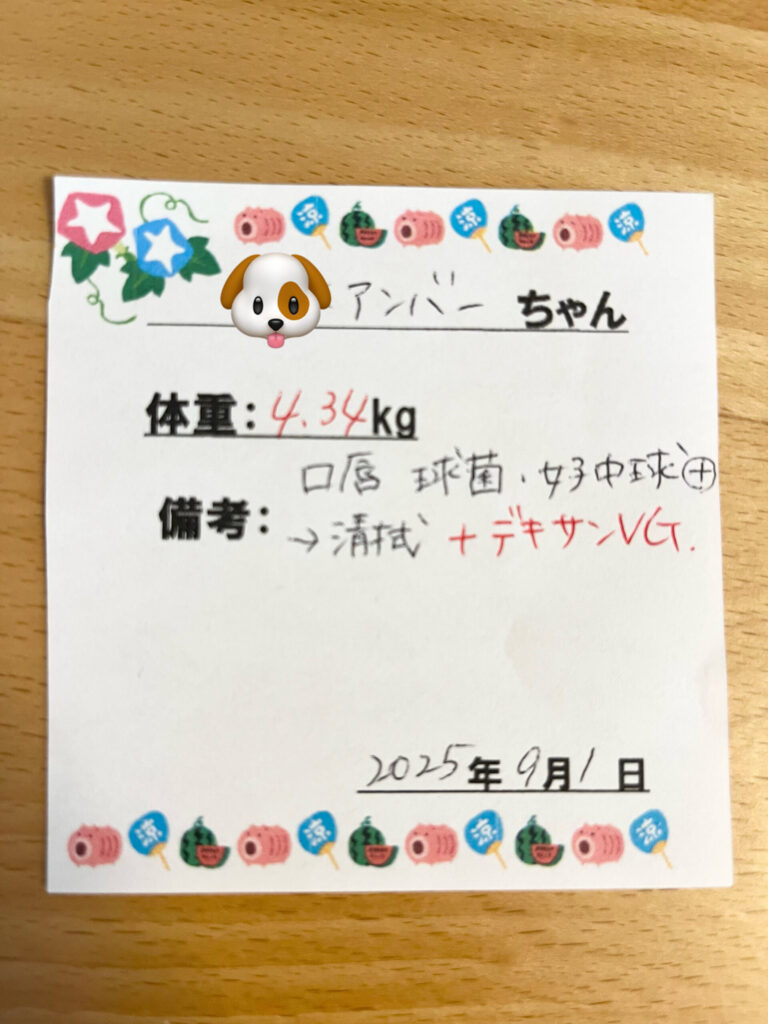 涼 涼 涼
アンバー ちゃん
体重：4.34kg
口唇 球菌・好中球⊕
備考：
→清拭 + デキサンVG.
2025年9月1日
涼 涼 涼 涼